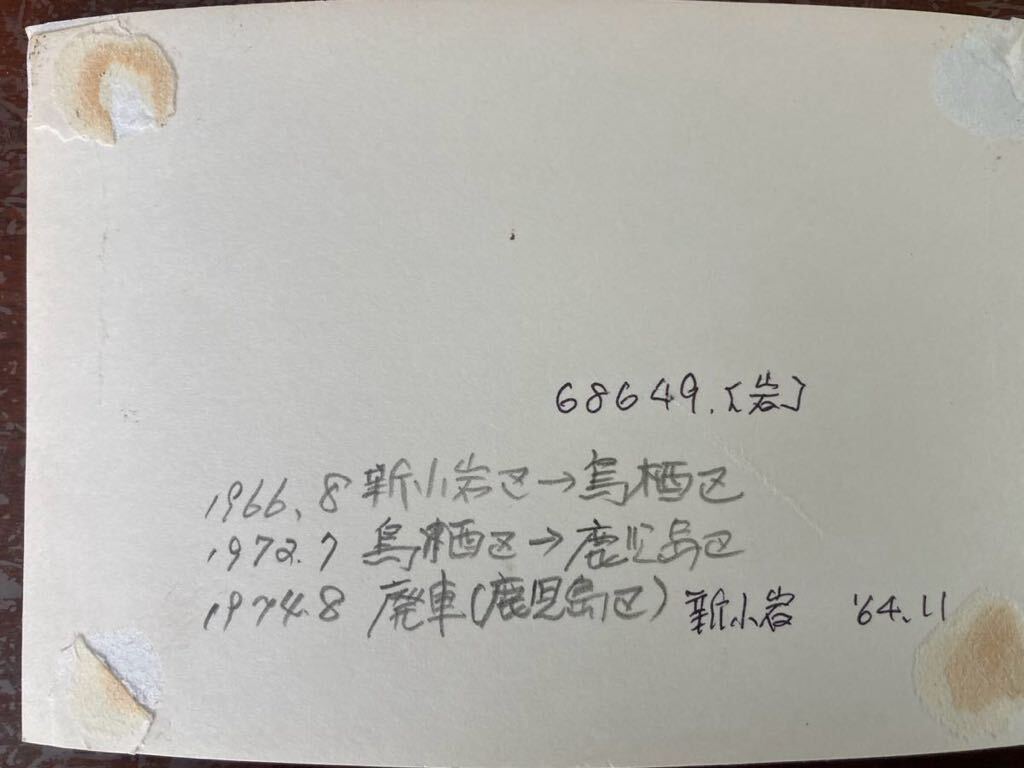 68649.〔岩〕
1966.8 新小岩区→鳥栖区
1972.7 鳥栖区→鹿児島区
1974.8 廃車(鹿児島区) 新小岩 '64.11